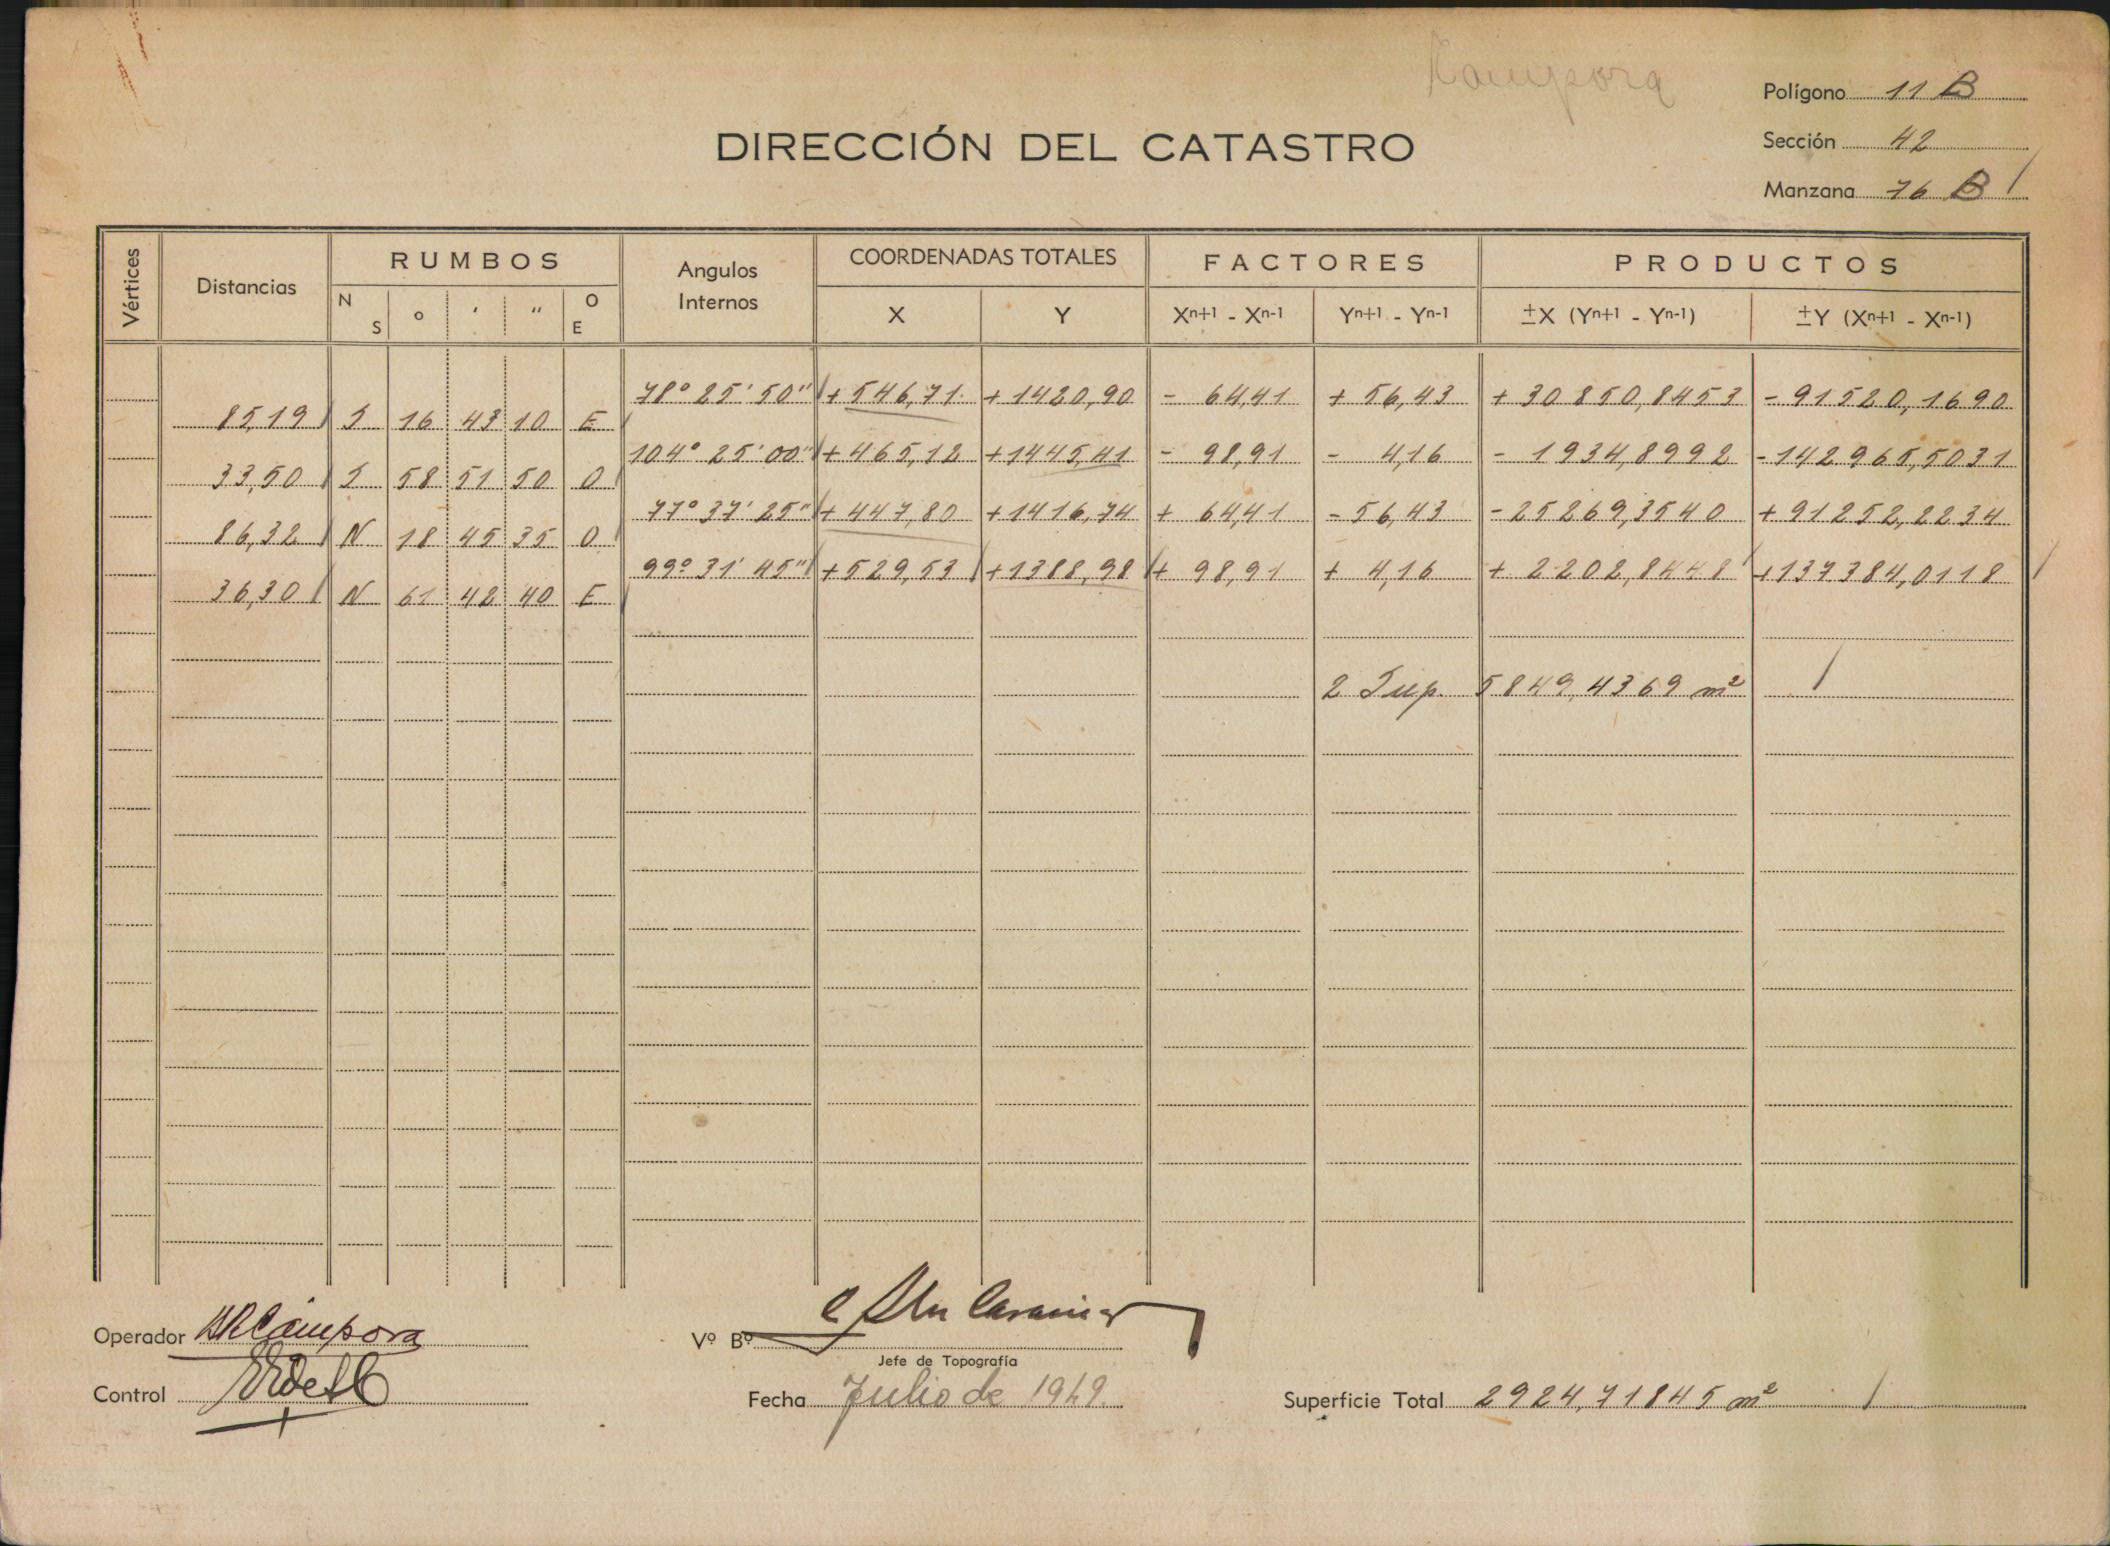 Kampora
Polígono 11 B
DIRECCIÓN DEL CATASTRO
Sección 42
Manzana 76 B
Vértices Distancias RUMBOS Angulos Internos COORDENADAS TOTALES FACTORES PRODUCTOS
N S ° ' " O E X Y Xn+1 - Xn-1 Yn+1 - Yn-1 ±X (Yn+1 - Yn-1) ±Y (Xn+1 - Xn-1)
78° 25' 50" +546,71 +1420,90 - 64,41 + 56,43 + 30850,8453 - 91520,1690
85,19 S 16 43 10 E
104° 25' 00" +465,12 +1445,41 - 98,91 - 4,16 - 1934,8992 -142965,5031
33,50 S 58 51 50 O
77° 37' 25" +447,80 +1416,74 + 64,41 -56,43 -25269,3540 +91252,2234
86,32 N 18 45 35 O
99° 31' 45" +529,53 +1388,98 + 98,91 + 4,16 + 2202,8448 +137384,0118
36,30 N 61 42 40 E
2 Sup. 5849,4369 m²
Operador HRCámpora
Vº Bº
Jefe de Topografía
Control
Fecha Julio de 1949.
Superficie Total 2924,71845 m²